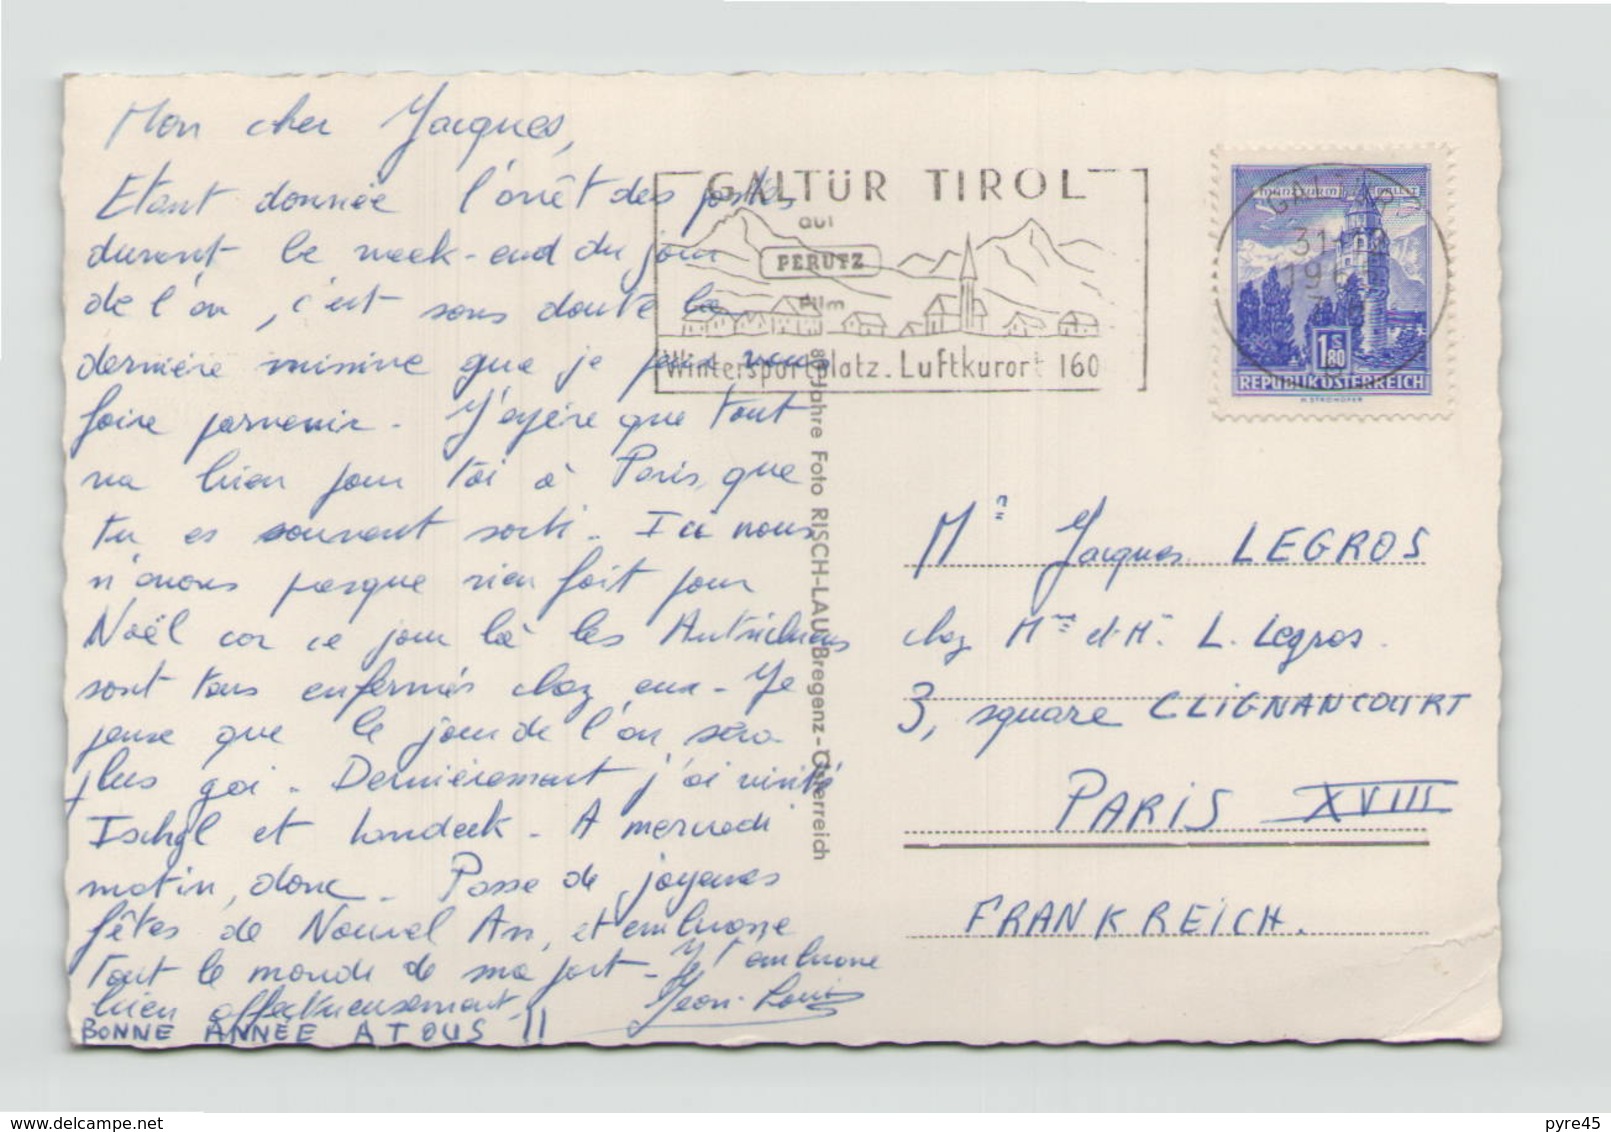 Mon cher Jacques,
Etant donnée l'arrêt des postes
durant le week-end du jour
de l'an, c'est sans doute la
dernière missive que je peux vous
faire parvenir - J'espère que tout
va bien pour toi à Paris, que
tu es souvent sorti - Ici nous
n'avons presque rien fait pour
Noël car ce jour là les Autrichiens
sont tous enfermés chez eux - Je
pense que le jour de l'an sera
plus gai - Dernièrement j'ai visité
Ischgl et Landeck - A mercredi
matin, donc - Passe de joyeuses
fêtes de Nouvel An, et embrasse
tout le monde de ma part - Je t'embrasse
bien affectueusement.
Jean-Louis
BONNE ANNÉE A TOUS !!
GALTÜR TIROL
auf
PERUTZ
Film
Wintersportplatz. Luftkurort 160
80 Jahre Foto RISCH-LAU Bregenz-Österreich
31-12
196
1 S 80
REPUBLIK ÖSTERREICH
H. STROHOFER
Mr Jacques LEGROS
chez Mme et Mr. L. Legros.
3, square CLIGNANCOURT
PARIS XVIII
FRANKREICH.
www.delcampe.net
pyre45